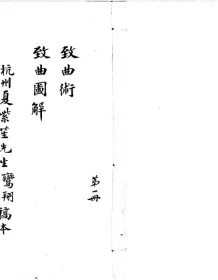 第一冊
致曲術
致曲圖解
杭州夏紫笙先生鸞翔稿本